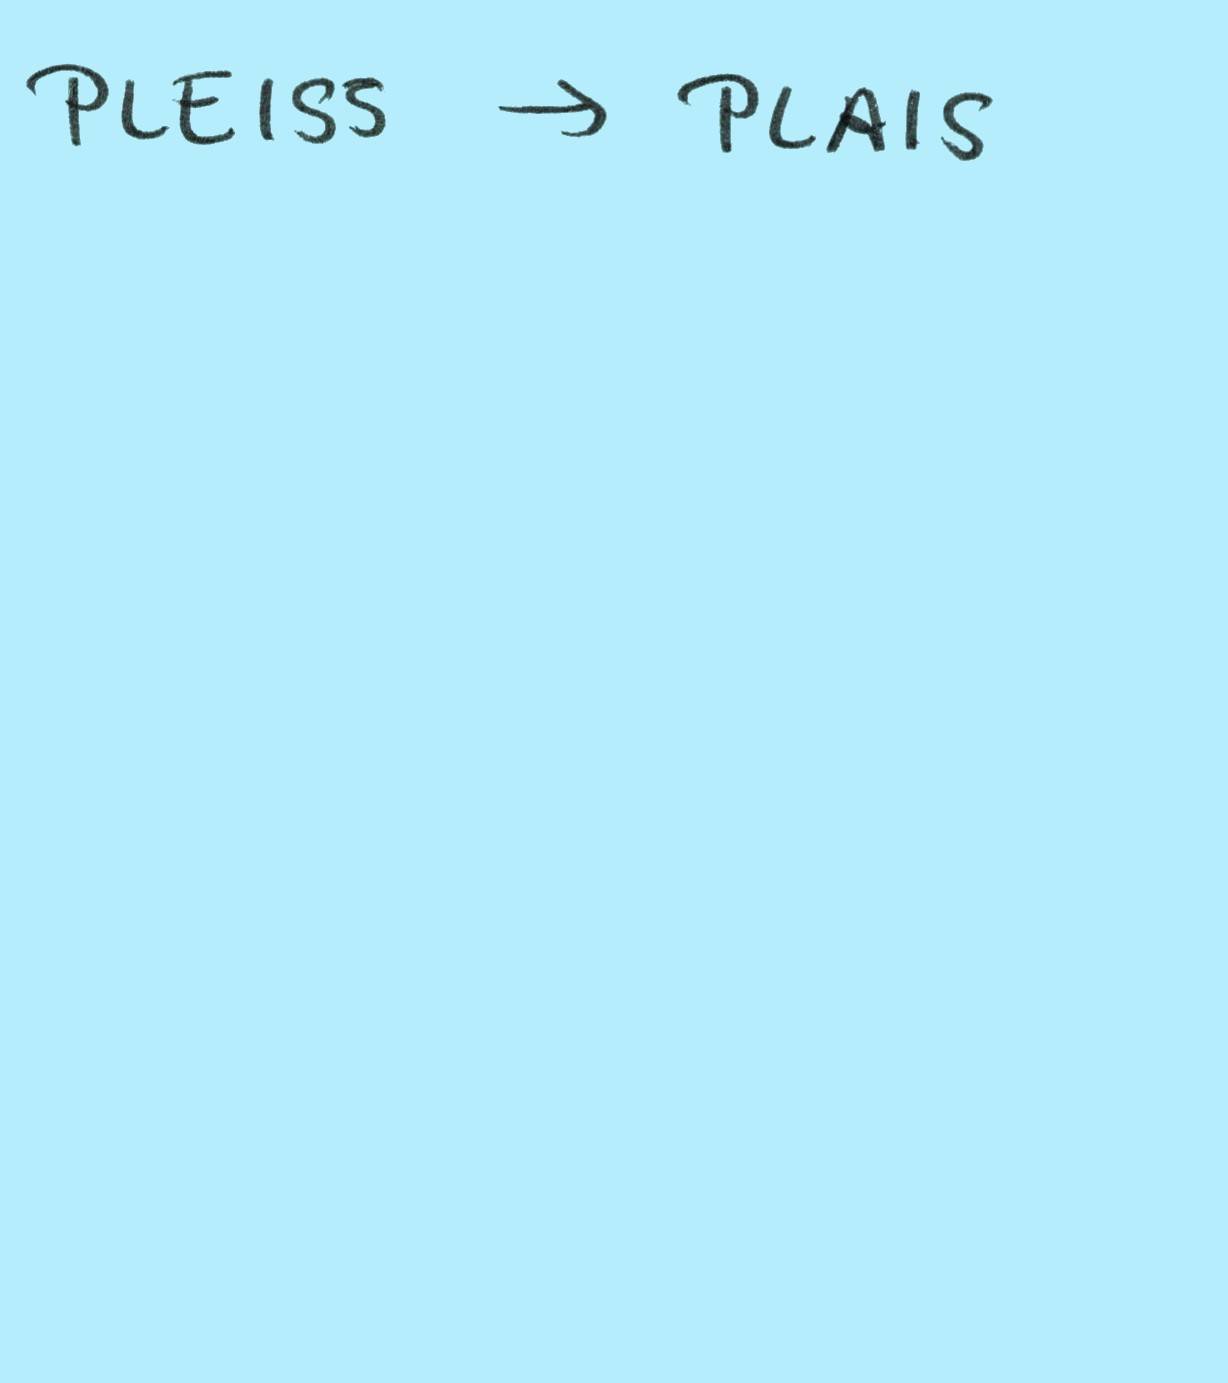 PLEISS → PLAIS